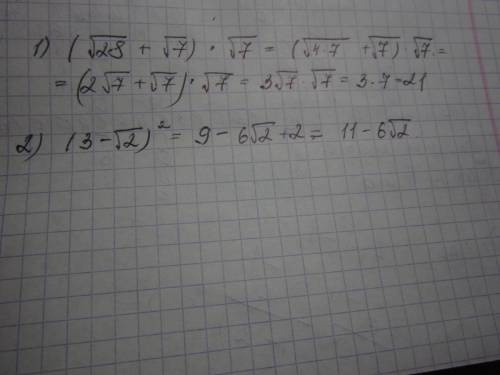 1) (√28 + √7) · √7 = (√4·7 + √7) · √7 =
= (2√7 + √7) · √7 = 3√7 · √7 = 3·7 = 21
2) (3 - √2)² = 9 - 6√2 + 2 = 11 - 6√2